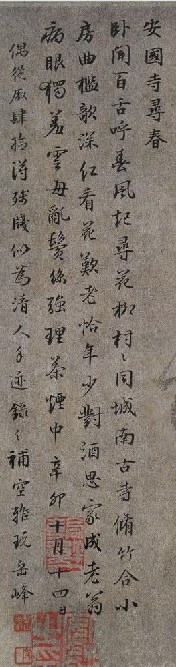 安國寺尋春
卧聞百舌呼春風起尋花柳村々同城南古寺脩竹合小
房曲檻欹深紅看花歎老憶年少對酒思家成老翁
病眼獨羞雲母亂鬢絲強理茶煙中辛卯十月十四日
偶從廠肆拾得殘牋似為清人手迹錄之補空雅玩岳峰